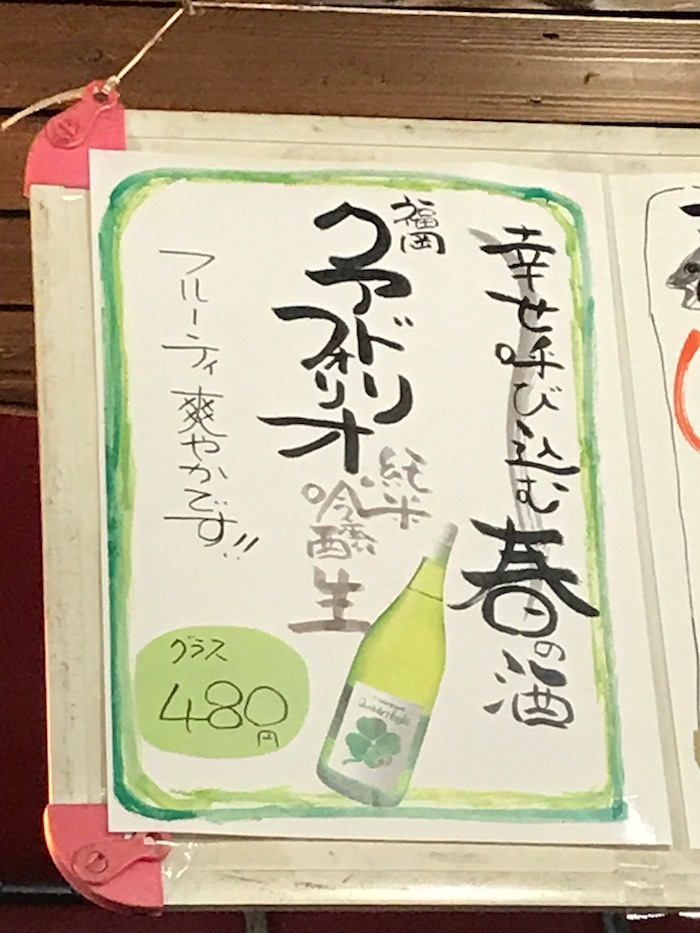 幸せ呼び込む
春の酒
福岡
クアドリ
フォリオ
純米
吟醸
生
フルーティ爽やかです!!
グラス
480
円